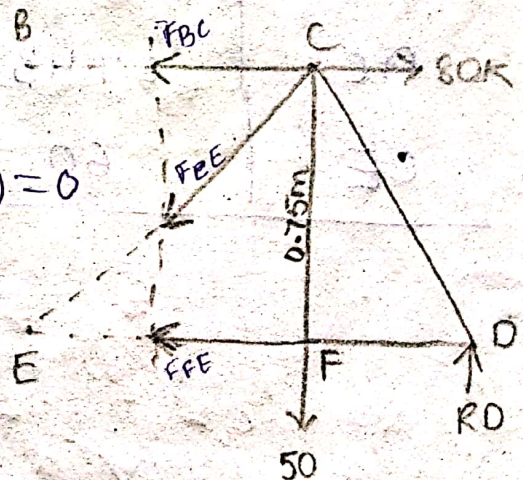 B
FBC
C
80K
) = 0
FBE
0.75m
E
FFE
F
D
RD
50